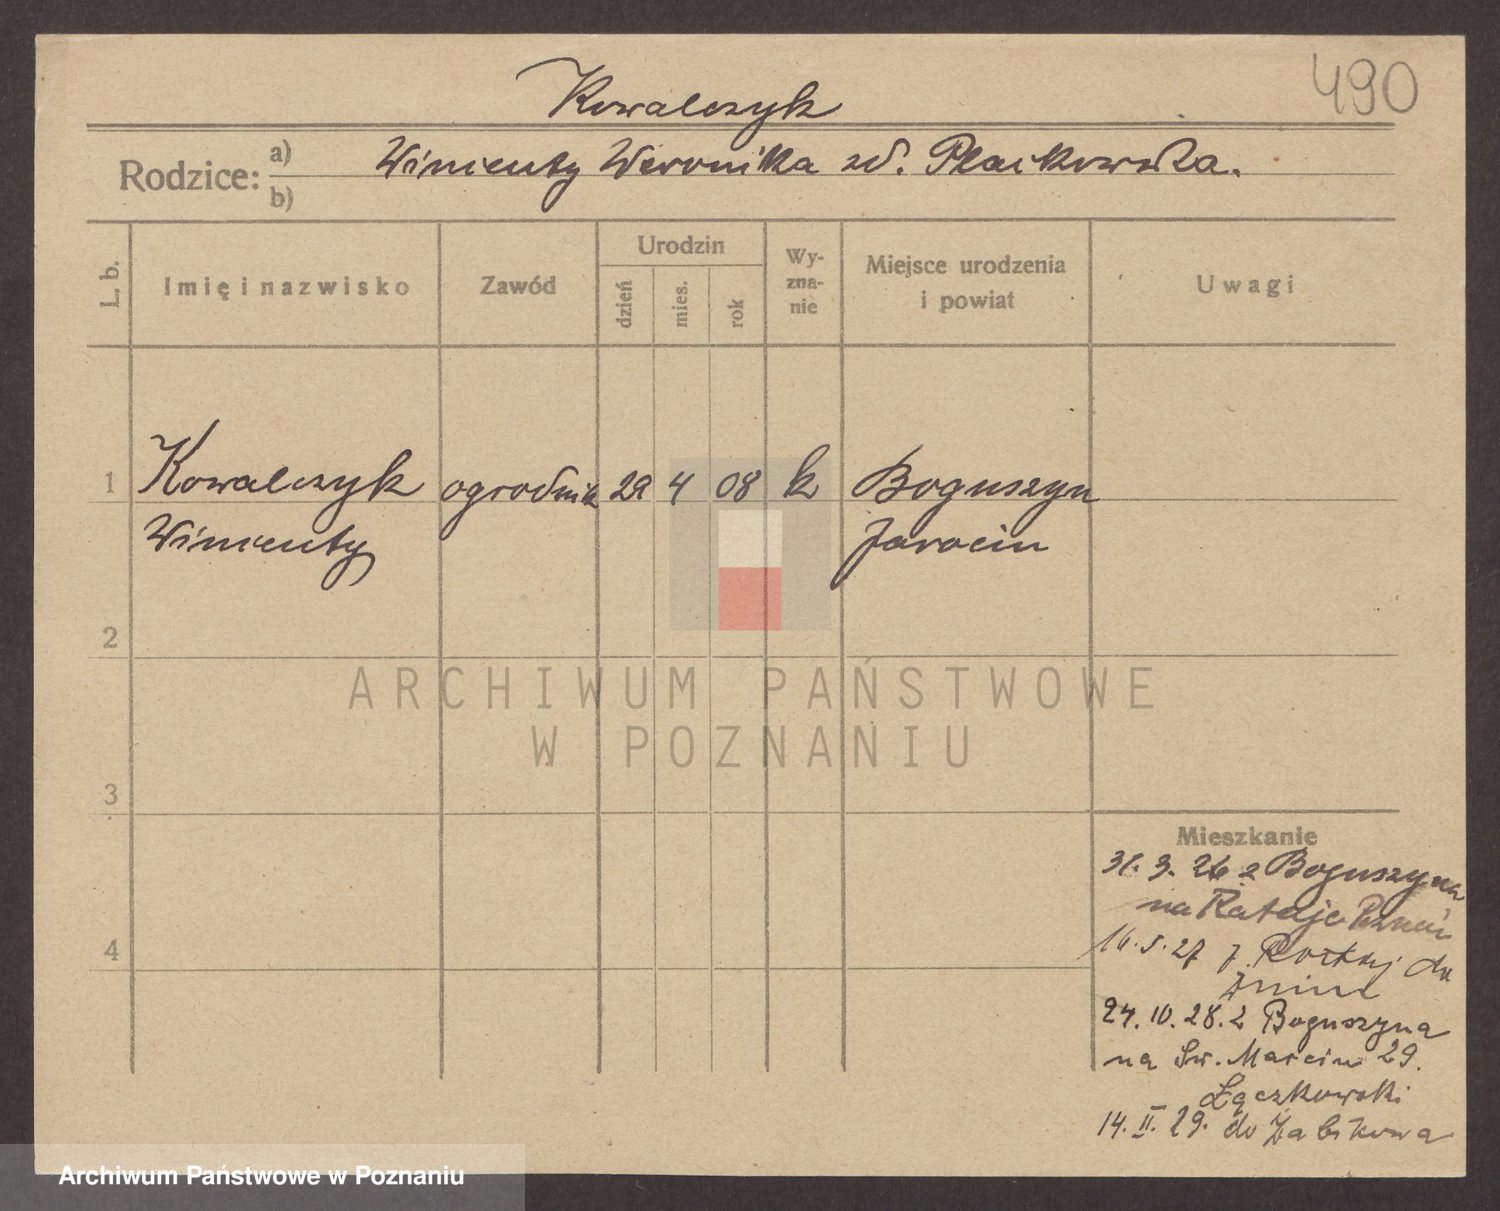 490
Kowalczyk
Rodzice: a) b)
Winienty Weronika zd.
L. b.
Imię i nazwisko
Zawód
Urodzin
dzień
mies.
rok
Wy-
zna-
nie
Miejsce urodzenia
i powiat
Uwagi
1 Kowalczyk ogrodnik 29 4 08 k Boguszyn
Winienty Jarocin
2
ARCHIWUM PAŃSTWOWE
W POZNANIU
3
Mieszkanie
31. 3. 26 z Boguszyna
na Rataje Poznań
4
16. 5. 27 do
24. 10. 28. z Boguszyna
na Św. Marcin 29.
Łączkowski
14. II. 29. do Żabikowa
Archiwum Państwowe w Poznaniu